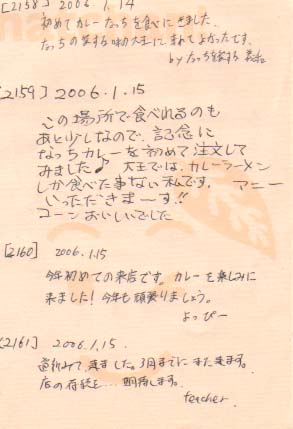 [2158] 2006.1.14
初めてカレーなっちを食べにきました。
なっちの愛する味の大王に来れてよかったです。
byなっちを愛する
[2159] 2006.1.15
この場所で食べれるのも
あと少しなので、記念に
なっちカレーを初めて注文して
みました♪ 大王では、カレーラーメン
しか食べた事ない私です。 マニー
いっただきまーす!!
コーンおいしいでした
[2160] 2006.1.15
今年初めての来店です。カレーを楽しみに
来ました!今年も頑張りましょう。
よっぴー
[2161] 2006.1.15.
道組みで来ました。3月までにまた来ます。
店の存続を…期待します。
teacher.